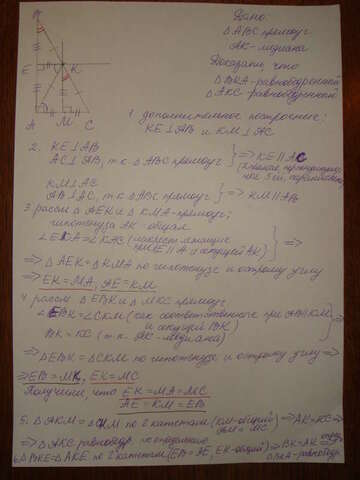 В
Дано:
△ABC прямоуг
AK-медиана
Доказать, что
△BKA-равнобедренный
△AKC-равнобедренный
E
K
A
M
C
1 дополнительное построение:
KE⊥AB и KM⊥AC
2. KE⊥AB
AC⊥AB, т.к △ABC прямоуг
=> KE||AC
KM⊥AC
AB⊥AC, т.к △ABC прямоуг
=> KM||AB
3 рассм △AEK и △KMA-прямоуг;
гипотенуза AK общая
∠EKA=∠KAC (накрест лежащие
и секущей AK)
=>
=> △AEK=△KMA по гипотенузе и острому углу
=> EK=MA, AE=KM
4 рассм △EBK и △MKC прямоуг
∠EBK=∠CKM (как соответственные при AB||KM
и секущей BK)
BK=KC (т.к. AK-медиана)
=>
=> △EBK=△CKM по гипотенузе и острому углу =>
=> EB=MK, EK=MC
Получили, что EK=MA=MC
AE=KM=EB
5. △AKM=△CKM по 2 катетам (KM-общий
AM=MC)
=> AK=KC =>
=> △AKC равнобедр. по определению
6 △BKE=△AKE по 2 катетам (EB=AE, EK-общий) => BK=AK =>
△BKA-равнобедр.